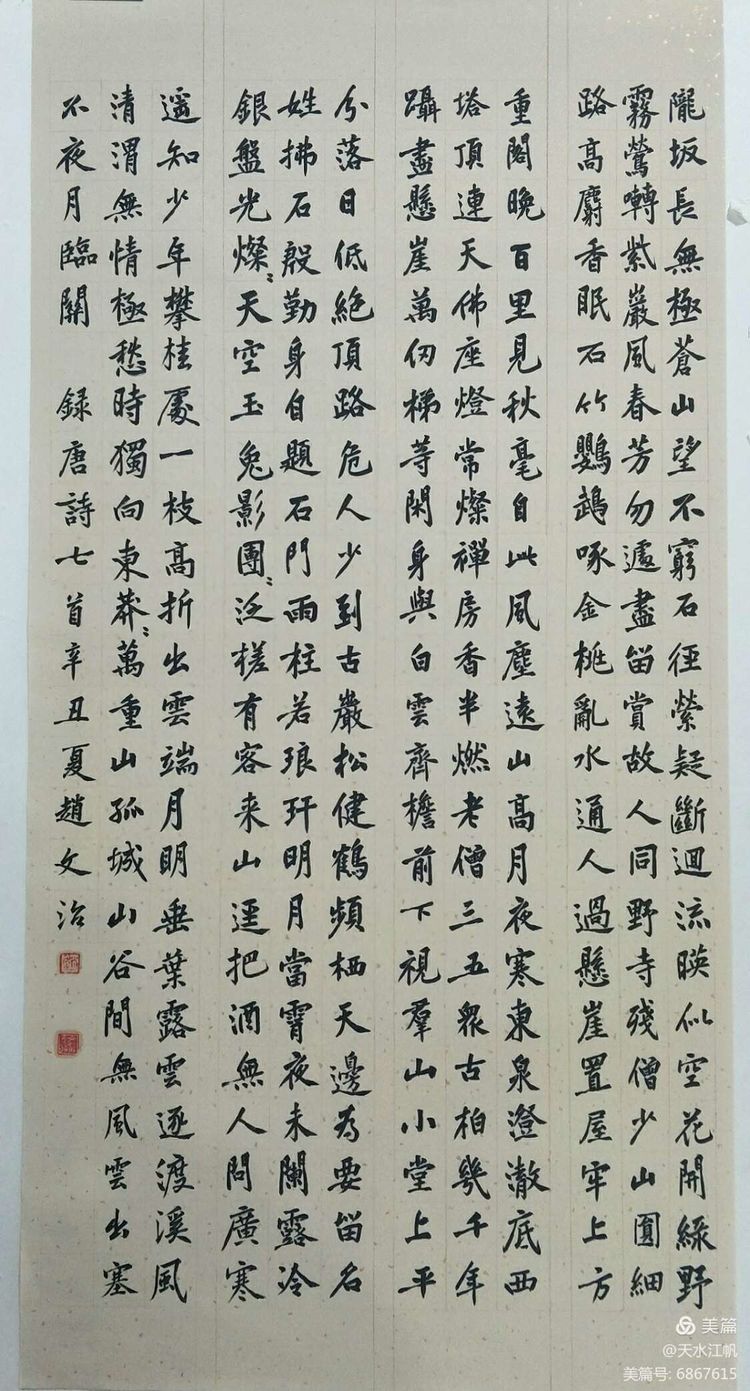 隴坂長無極蒼山望不窮石徑縈疑斷迴流暎似空花開綠野
霧鶯囀紫巖風春芳勿遽盡留賞故人同野寺殘僧少山圓細
路高麝香眠石竹鸚鵡啄金桃亂水通人過懸崖置屋牢上方
重閣晚百里見秋毫自此風塵遠山高月夜寒東泉澄澈底西
塔頂連天佛座燈常燦禪房香半燃老僧三五衆古柏幾千年
躡盡懸崖萬仞梯等閑身與白雲齊檐前下視羣山小堂上平
分落日低絕頂路危人少到古巖松健鶴頻栖天邊為要留名
姓拂石殷勤身自題石門雨柱若琅玕明月當霄夜未闌露冷
銀盤光燦〻天空玉兔影團〻泛槎有客来山逕把酒無人問廣寒
遥知少年攀桂處一枝高折出雲端月明垂葉露雲逐渡溪風
清渭無情極愁時獨向東莽〻萬重山孤城山谷間無風雲出塞
不夜月臨關 録唐詩七首辛丑夏趙文治
美篇
@天水江帆
美篇号: 6867615